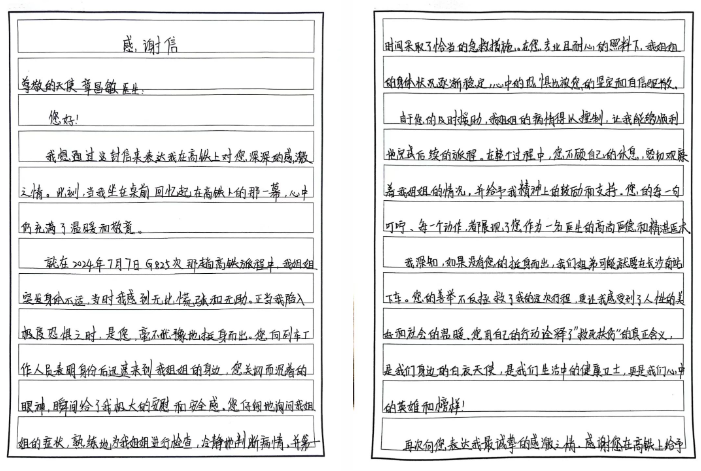 感谢信
尊敬的天使章昌敏医生:
您好!
我想通过这封信来表达我在高铁上对您深深的感激
之情。此刻,当我坐在桌前回忆起在高铁上的那一幕,心中
仍充满了温暖和敬意。
就在2024年7月7日G825次那趟高铁旅程中,我姐姐
突发身体不适,当时我感到无比慌张和无助。正当我陷入
极度恐惧之时,是您,毫不犹豫地挺身而出。您向列车工
作人员表明身份后迅速来到我姐姐的身边,您关切而沉着的
眼神,瞬间给了我极大的安慰和安全感。您仔细地询问我姐
姐的症状,熟练地为我姐姐进行检查,冷静地判断病情,并第一
时间采取了恰当的急救措施。在您专业且耐心的照料下,我姐姐
的身体状况逐渐稳定,心中的恐惧也被您的坚定和自信驱散。
由于您的及时援助,我姐姐的病情得以控制,让我能够顺利
地完成后续的旅程。在整个过程中,您不顾自己的休息,密切观察
着我姐姐的情况,并给予我精神上的鼓励和支持。您的每一句
叮咛、每一个动作,都展现了您作为一名医生的高尚医德和精湛医术
我深知,如果没有您的挺身而出,我们姐弟可能就要在长沙南站
下车。您的善举不仅拯救了我的这次行程,更让我感受到了人性的美
好和社会的温暖,您用自己的行动诠释了“救死扶伤”的真正含义,
是我们身边的白衣天使,是我们生活中的健康卫士,更是我们心中
的英雄和榜样!
再次向您表达我最诚挚的感激之情。感谢您在高铁上给予